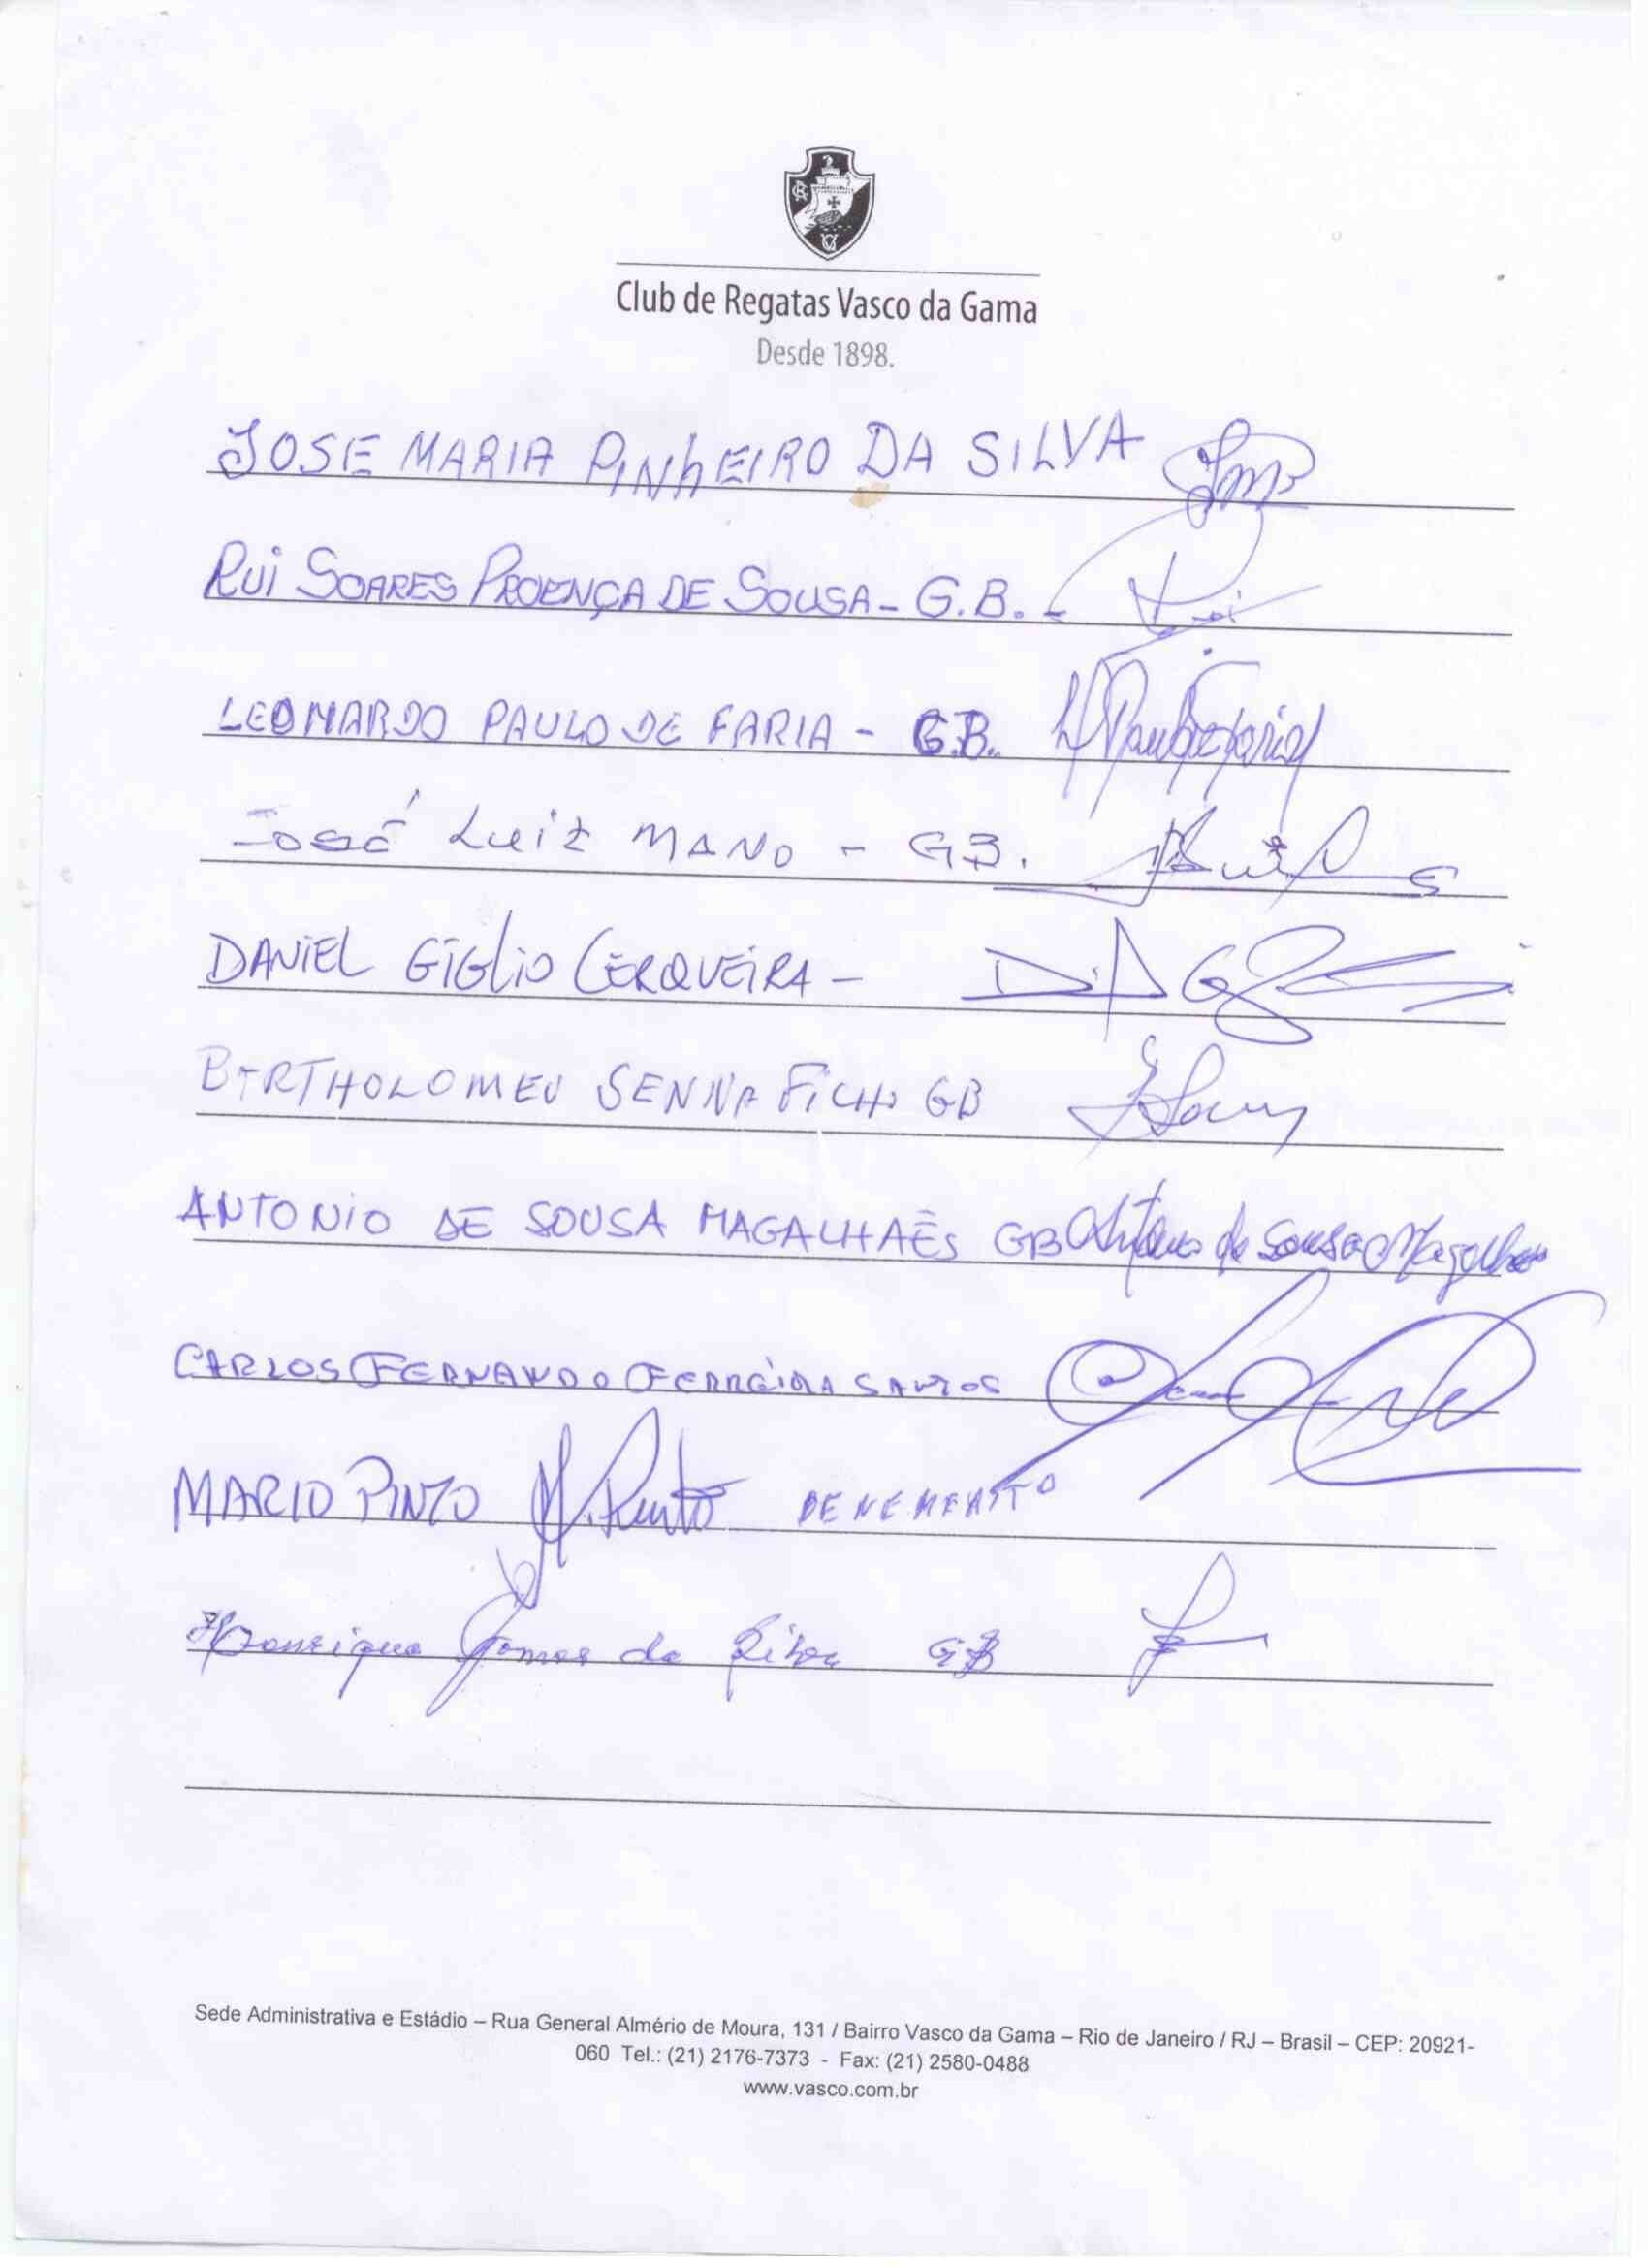 Club de Regatas Vasco da Gama
Desde 1898.
JOSE MARIA PINhEIRO DA SILVA
RUi SOARES PROENÇA DE SOUSA - G.B. -
LEONARDO PAULO DE FARIA - G.B.
José Luiz MANO - GB.
DANiEL GiGLiO CERQVEiRA -
BARTHOLOMEU SENNA FiLHO GB
ANTONiO DE SOUSA MAGALHAẼS GB Antonio de Sousa Magalhães
CARLOS FERNANDO FERREIRA SANTOS
MARIO PINTO M. Pinto BENEMERITO
Henrique Gomes da Silva GB
Sede Administrativa e Estádio – Rua General Almério de Moura, 131 / Bairro Vasco da Gama – Rio de Janeiro / RJ – Brasil – CEP: 20921-
060 Tel.: (21) 2176-7373 - Fax: (21) 2580-0488
www.vasco.com.br